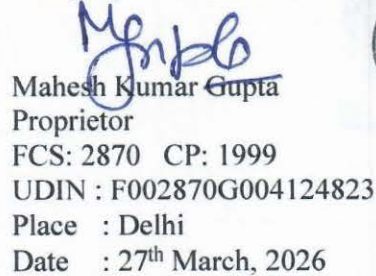 Mahesh Kumar Gupta
Proprietor
FCS: 2870 CP: 1999
UDIN : F002870G004124823
Place : Delhi
Date : 27th March, 2026